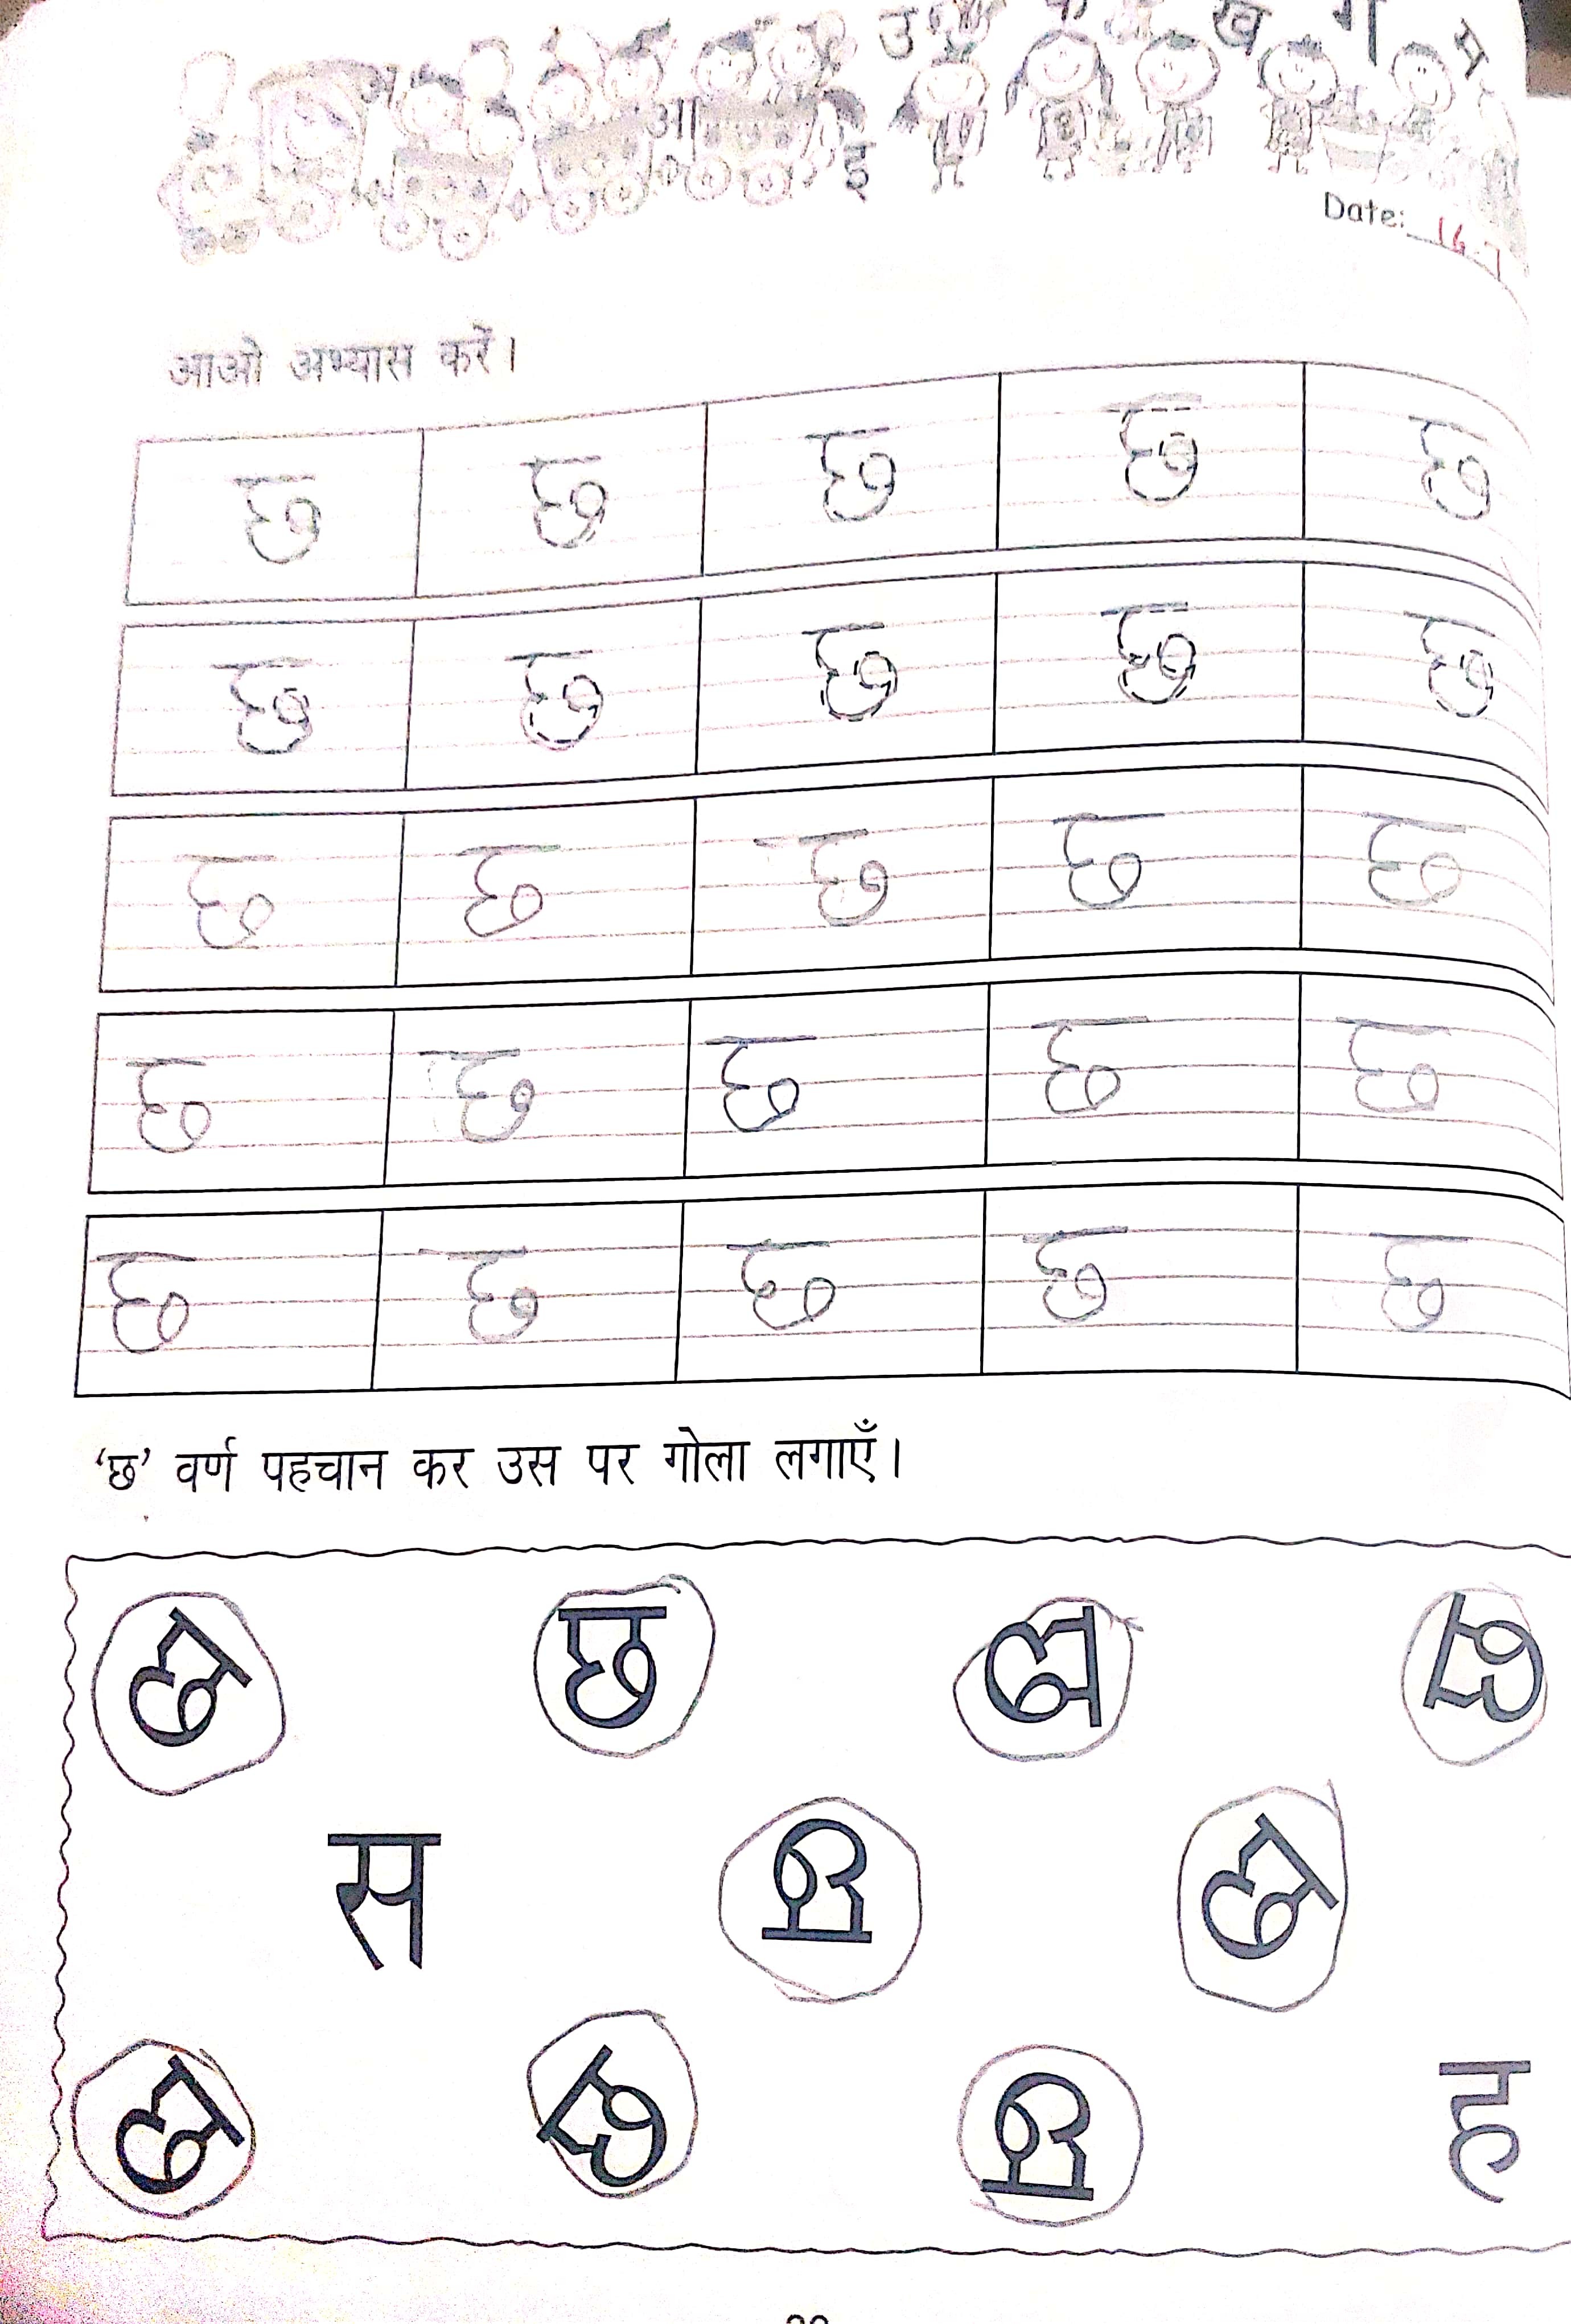 उ क ख ग म
आ
इ
Date: 16.7
आओ अभ्यास करें।
छ छ छ छ छ
छ छ छ छ छ
छ छ छ छ छ
छ छ छ छ छ
छ छ छ छ छ
‘छ’ वर्ण पहचान कर उस पर गोला लगाएँ।
छ छ छ छ
स छ छ
छ छ छ ह